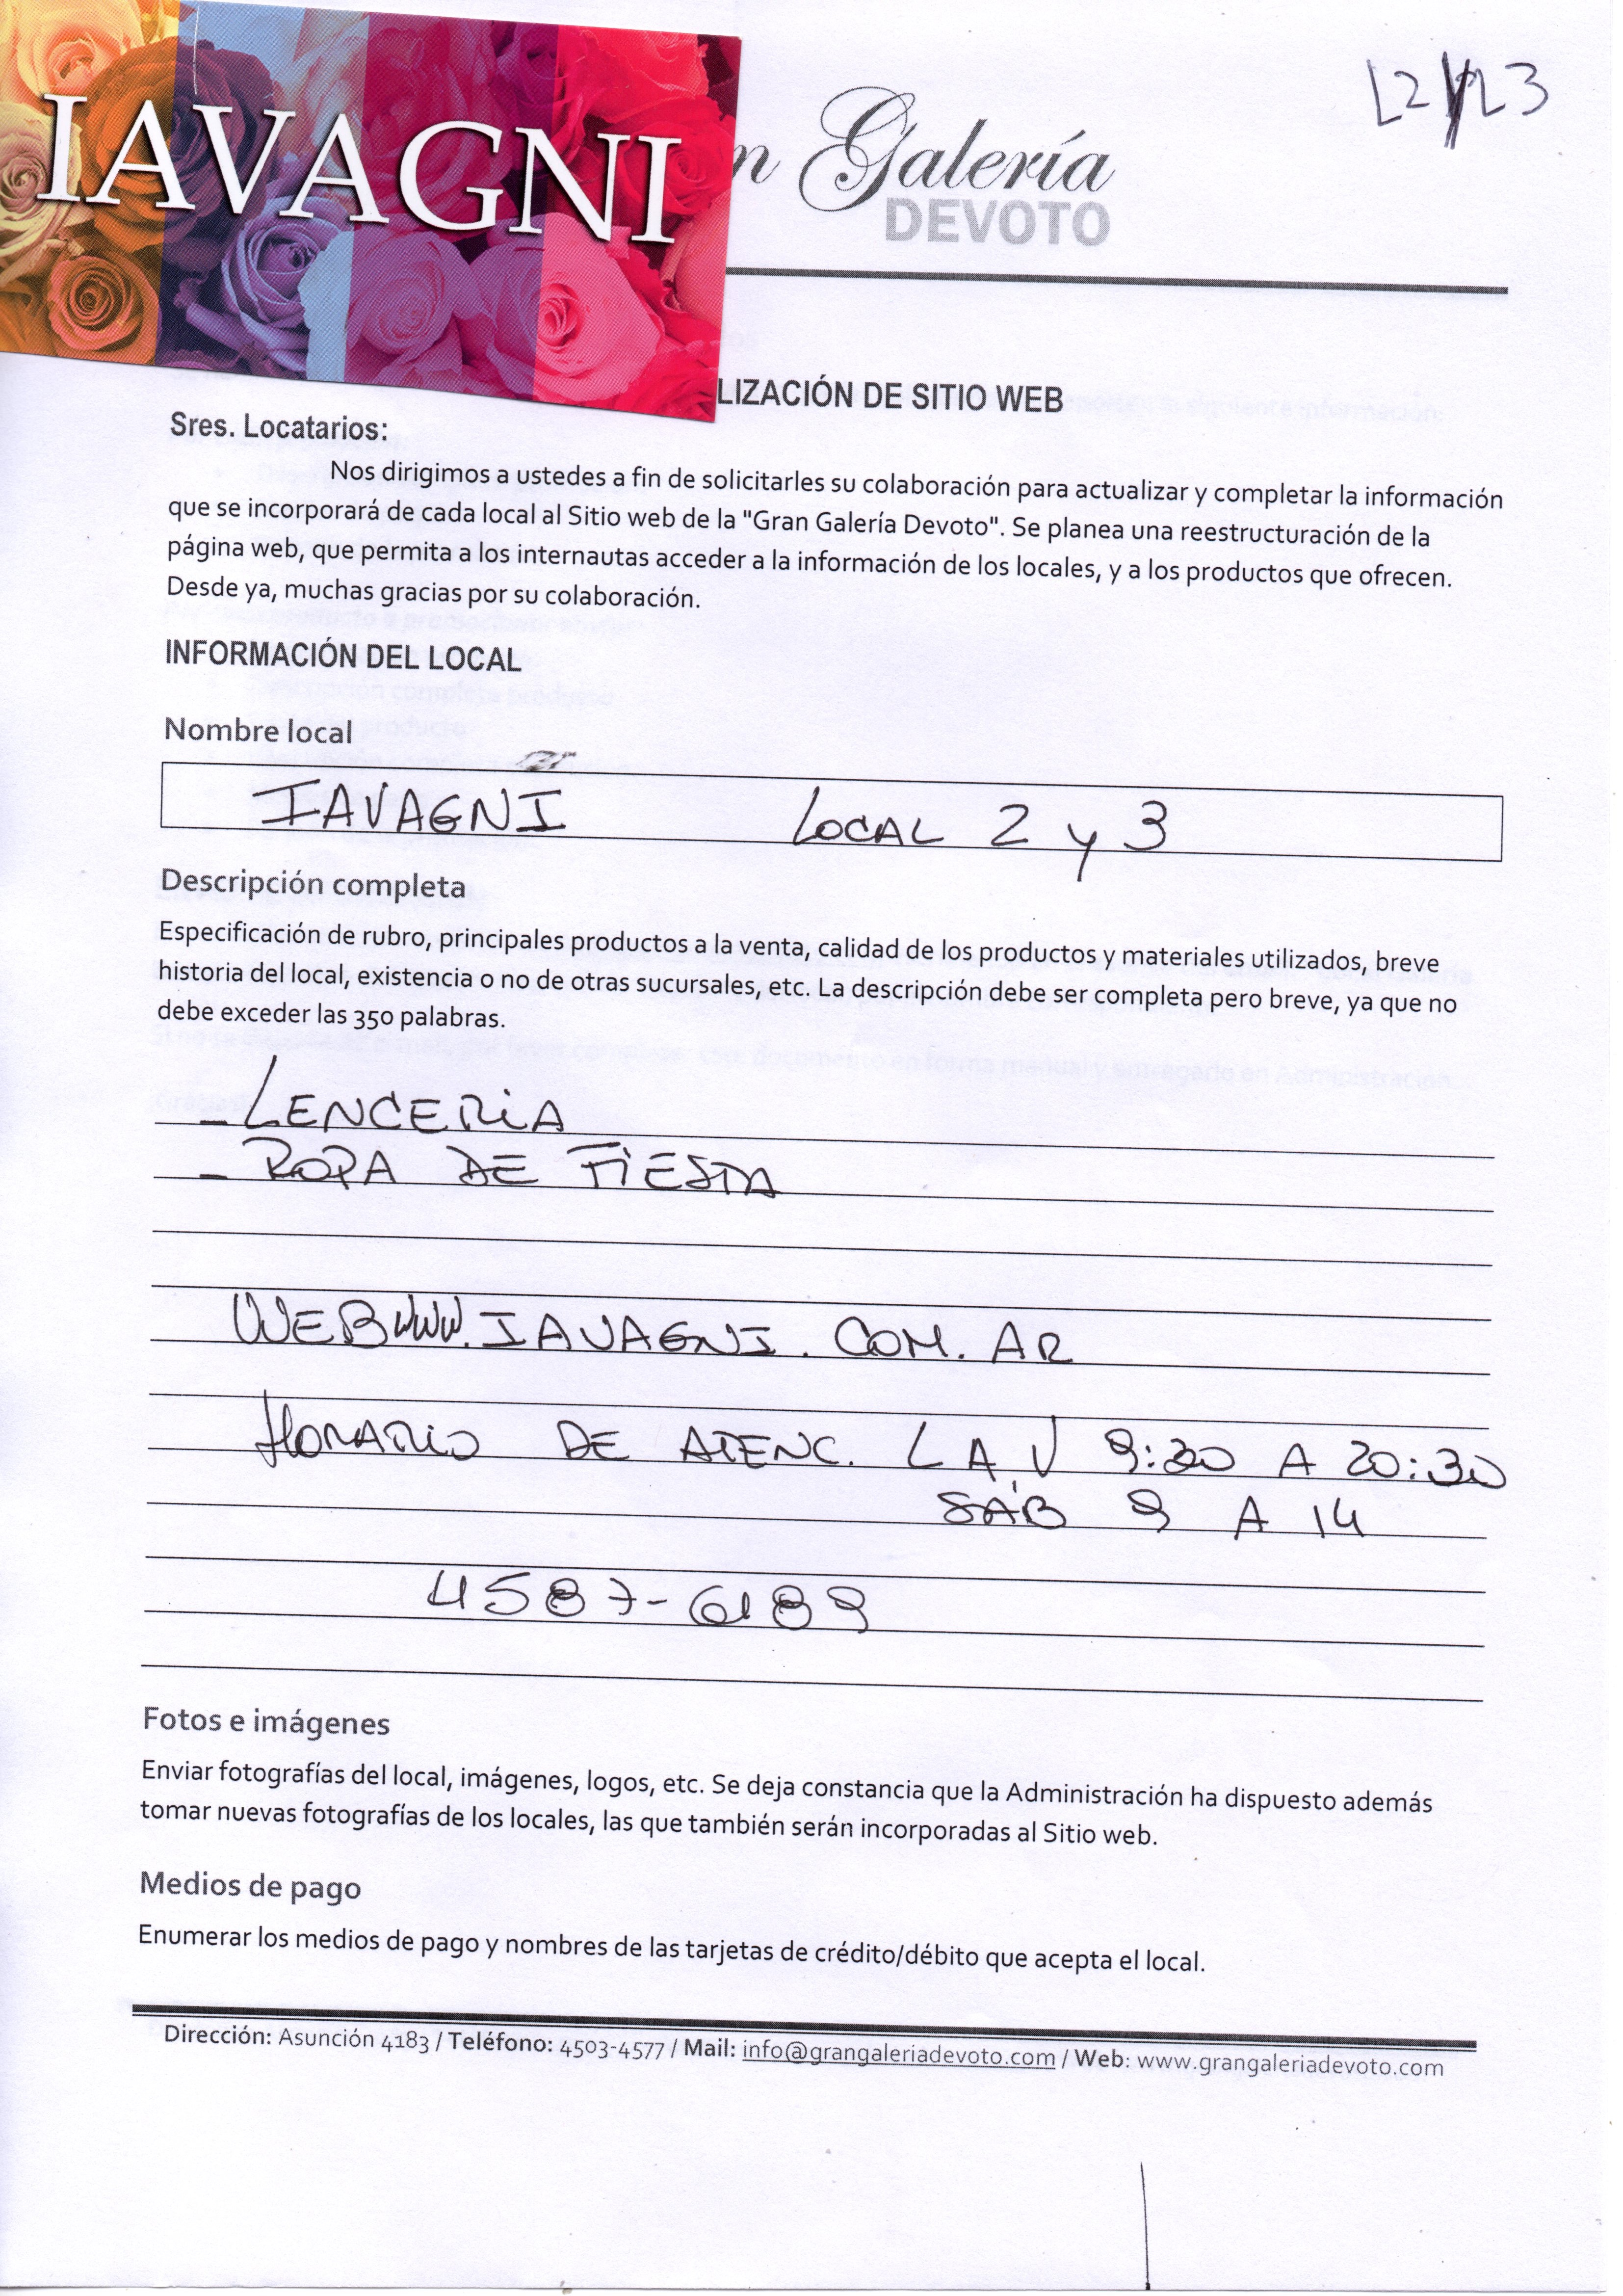 IAVAGNI
L2 y L3
n Galería
DEVOTO
LIZACIÓN DE SITIO WEB
Sres. Locatarios:
Nos dirigimos a ustedes a fin de solicitarles su colaboración para actualizar y completar la información
que se incorporará de cada local al Sitio web de la "Gran Galería Devoto". Se planea una reestructuración de la
página web, que permita a los internautas acceder a la información de los locales, y a los productos que ofrecen.
Desde ya, muchas gracias por su colaboración.
INFORMACIÓN DEL LOCAL
Nombre local
IAVAGNI LOCAL 2 y 3
Descripción completa
Especificación de rubro, principales productos a la venta, calidad de los productos y materiales utilizados, breve
historia del local, existencia o no de otras sucursales, etc. La descripción debe ser completa pero breve, ya que no
debe exceder las 350 palabras.
- LENCERiA
- ROPA DE FiESTA
WEB WWW.IAVAGNI.COM.AR
HORARiO DE ATENC. L A V 9:30 A 20:30
SÁB 9 A 14
4587-6189
Fotos e imágenes
Enviar fotografías del local, imágenes, logos, etc. Se deja constancia que la Administración ha dispuesto además
tomar nuevas fotografías de los locales, las que también serán incorporadas al Sitio web.
Medios de pago
Enumerar los medios de pago y nombres de las tarjetas de crédito/débito que acepta el local.
Dirección: Asunción 4183 / Teléfono: 4503-4577 / Mail: info@grangaleriadevoto.com / Web: www.grangaleriadevoto.com